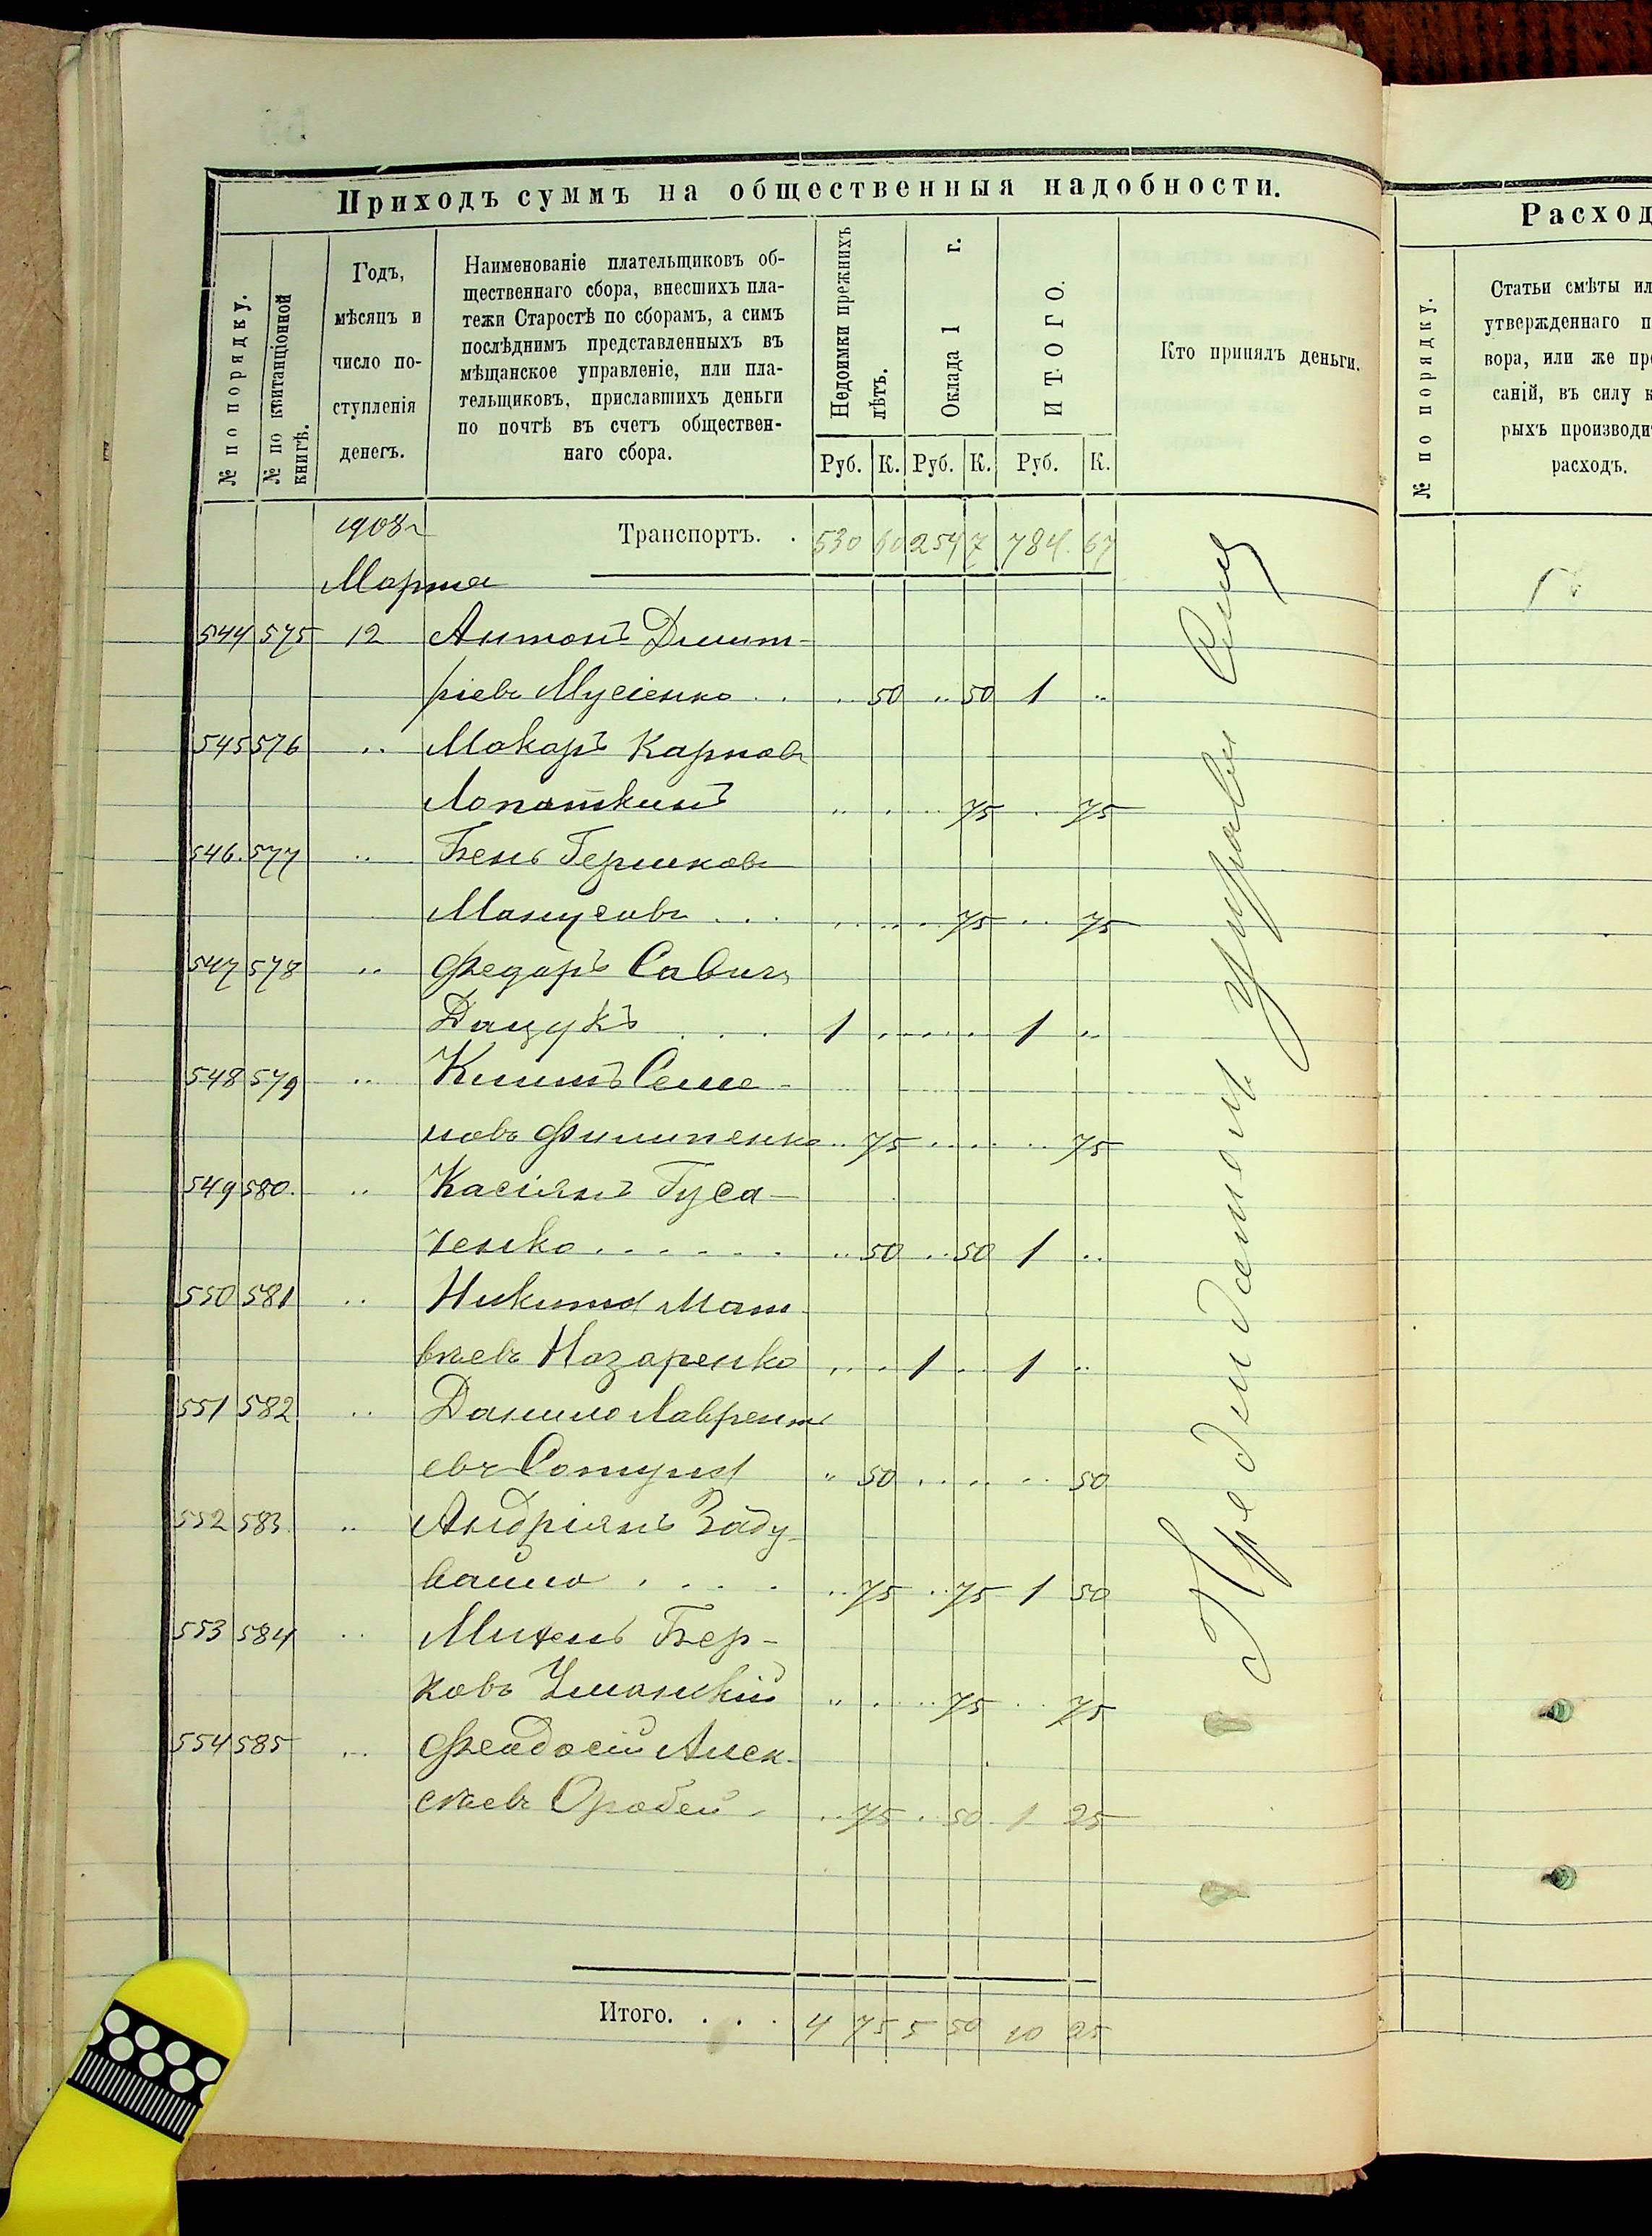 Приходъ суммъ на общественныя надобности.
№ по порядку.
№ по квитанціонной книгѣ.
Годъ,
мѣсяцъ и
число по-
ступленія
денегъ.
Наименованіе плательщиковъ об-
щественнаго сбора, внесшихъ пла-
тежи Старостѣ по сборамъ, а симъ
послѣднимъ представленныхъ въ
мѣщанское управленіе, или пла-
тельщиковъ, приславшихъ деньги
по почтѣ въ счетъ обществен-
наго сбора.
Недоимки прежнихъ лѣтъ.
Оклада 1 г.
ИТОГО.
Кто принялъ деньги.
Руб. К. Руб. К. Руб. К.
1908 г Транспортъ. . 530 60 254 7 784. 67
Марта
544 575 12 Антонъ Дмит-
ріевъ Мусіенко . . .. 50 .. 50 1 ..
545 576 .. Макаръ Карповъ
Лопаткинъ .. .. .. 75 .. 75
546. 577 .. Бень Гершковъ
Манусовъ . . . .. .. .. 75 .. 75
547 578 .. Федоръ Савичъ
Дацукъ . . . 1 .. .. .. 1 ..
548 579 .. Климъ Семе-
новъ Филипенко .. 75 .. .. .. 75
549 580. .. Касіянъ Гуса-
ченко . . . . . . .. 50 .. 50 1 ..
550 581 .. Никита Мат-
вѣевъ Назаренко .. .. 1 .. 1 ..
551 582 .. Данило Лаврентъ
евъ Сотуля .. 50 .. .. .. 50
552 583. .. Андріянъ Заду-
вайло . . . . .. 75 .. 75 1 50
553 584 .. Михель Бер-
ковъ Уманскій .. .. .. 75 .. 75
554 585 .. Феодосій Алек-
сѣевъ Оробей .. 75 .. 50 1 25
Итого. . . . 4 75 5 50 10 25
Президентъ управы
Расход
№ по порядку.
Статьи смѣты ил
утвержденнаго п
вора, или же пре
саній, въ силу к
рыхъ производит
расходъ.